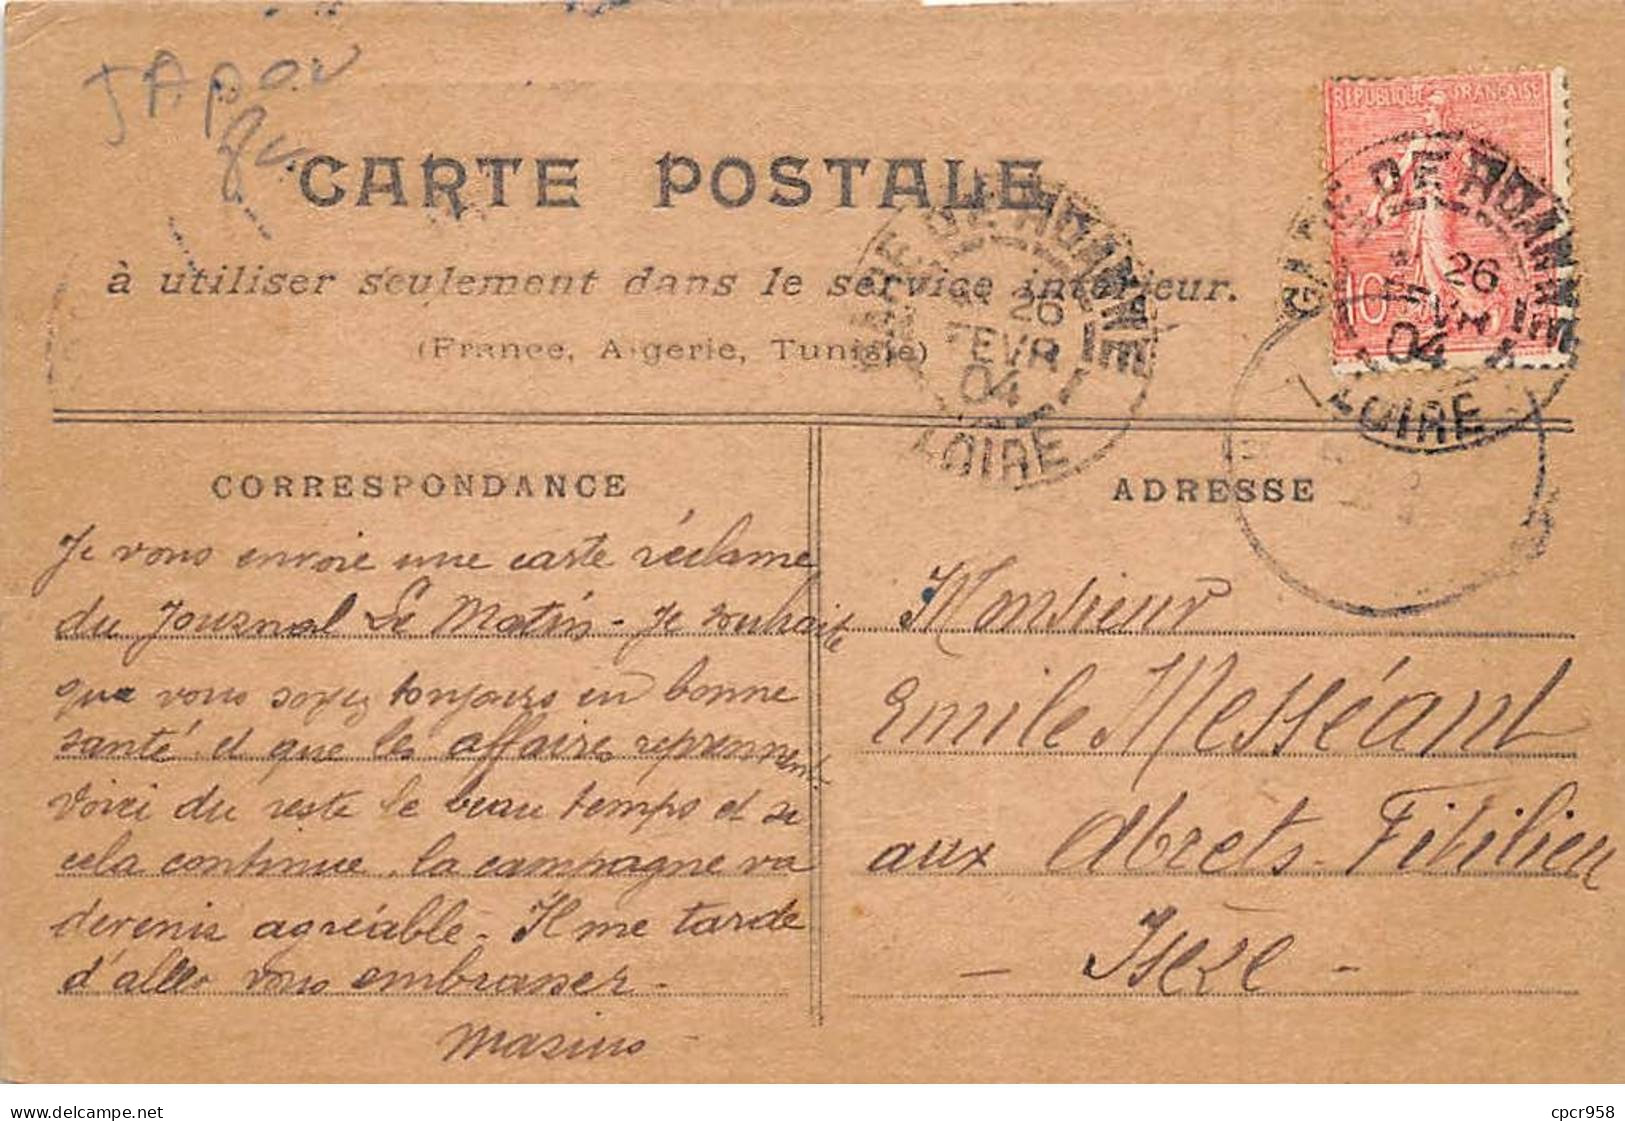 JAPON
CARTE POSTALE
à utiliser seulement dans le service intérieur.
(France, Algerie, Tunisie)
REPUBLIQUE FRANÇAISE
10
GARE DE ROANNE
26
FEVR
04
LOIRE
GARE DE ROANNE
26
FEVR
04
LOIRE
CORRESPONDANCE
Je vous envoie une carte réclame
du Journal Le Matin - Je souhaite
que vous soyez toujours en bonne
santé et que les affaires reprennent
Voici du reste le beau temps et si
cela continue, la campagne va
devenir agréable - Il me tarde
d'aller vous embrasser -
ADRESSE
Monsieur
Emile Messéant
aux Abrets - Fitilieu
- Isère -
delcampe.net
cpcr958